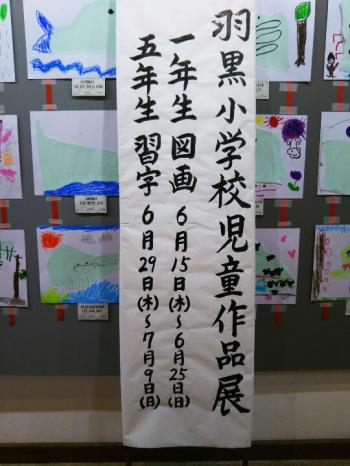 羽黒小学校児童作品展
一年生 図画 6月15日(木)～6月25日(日)
五年生 習字 6月29日(木)～7月9日(日)